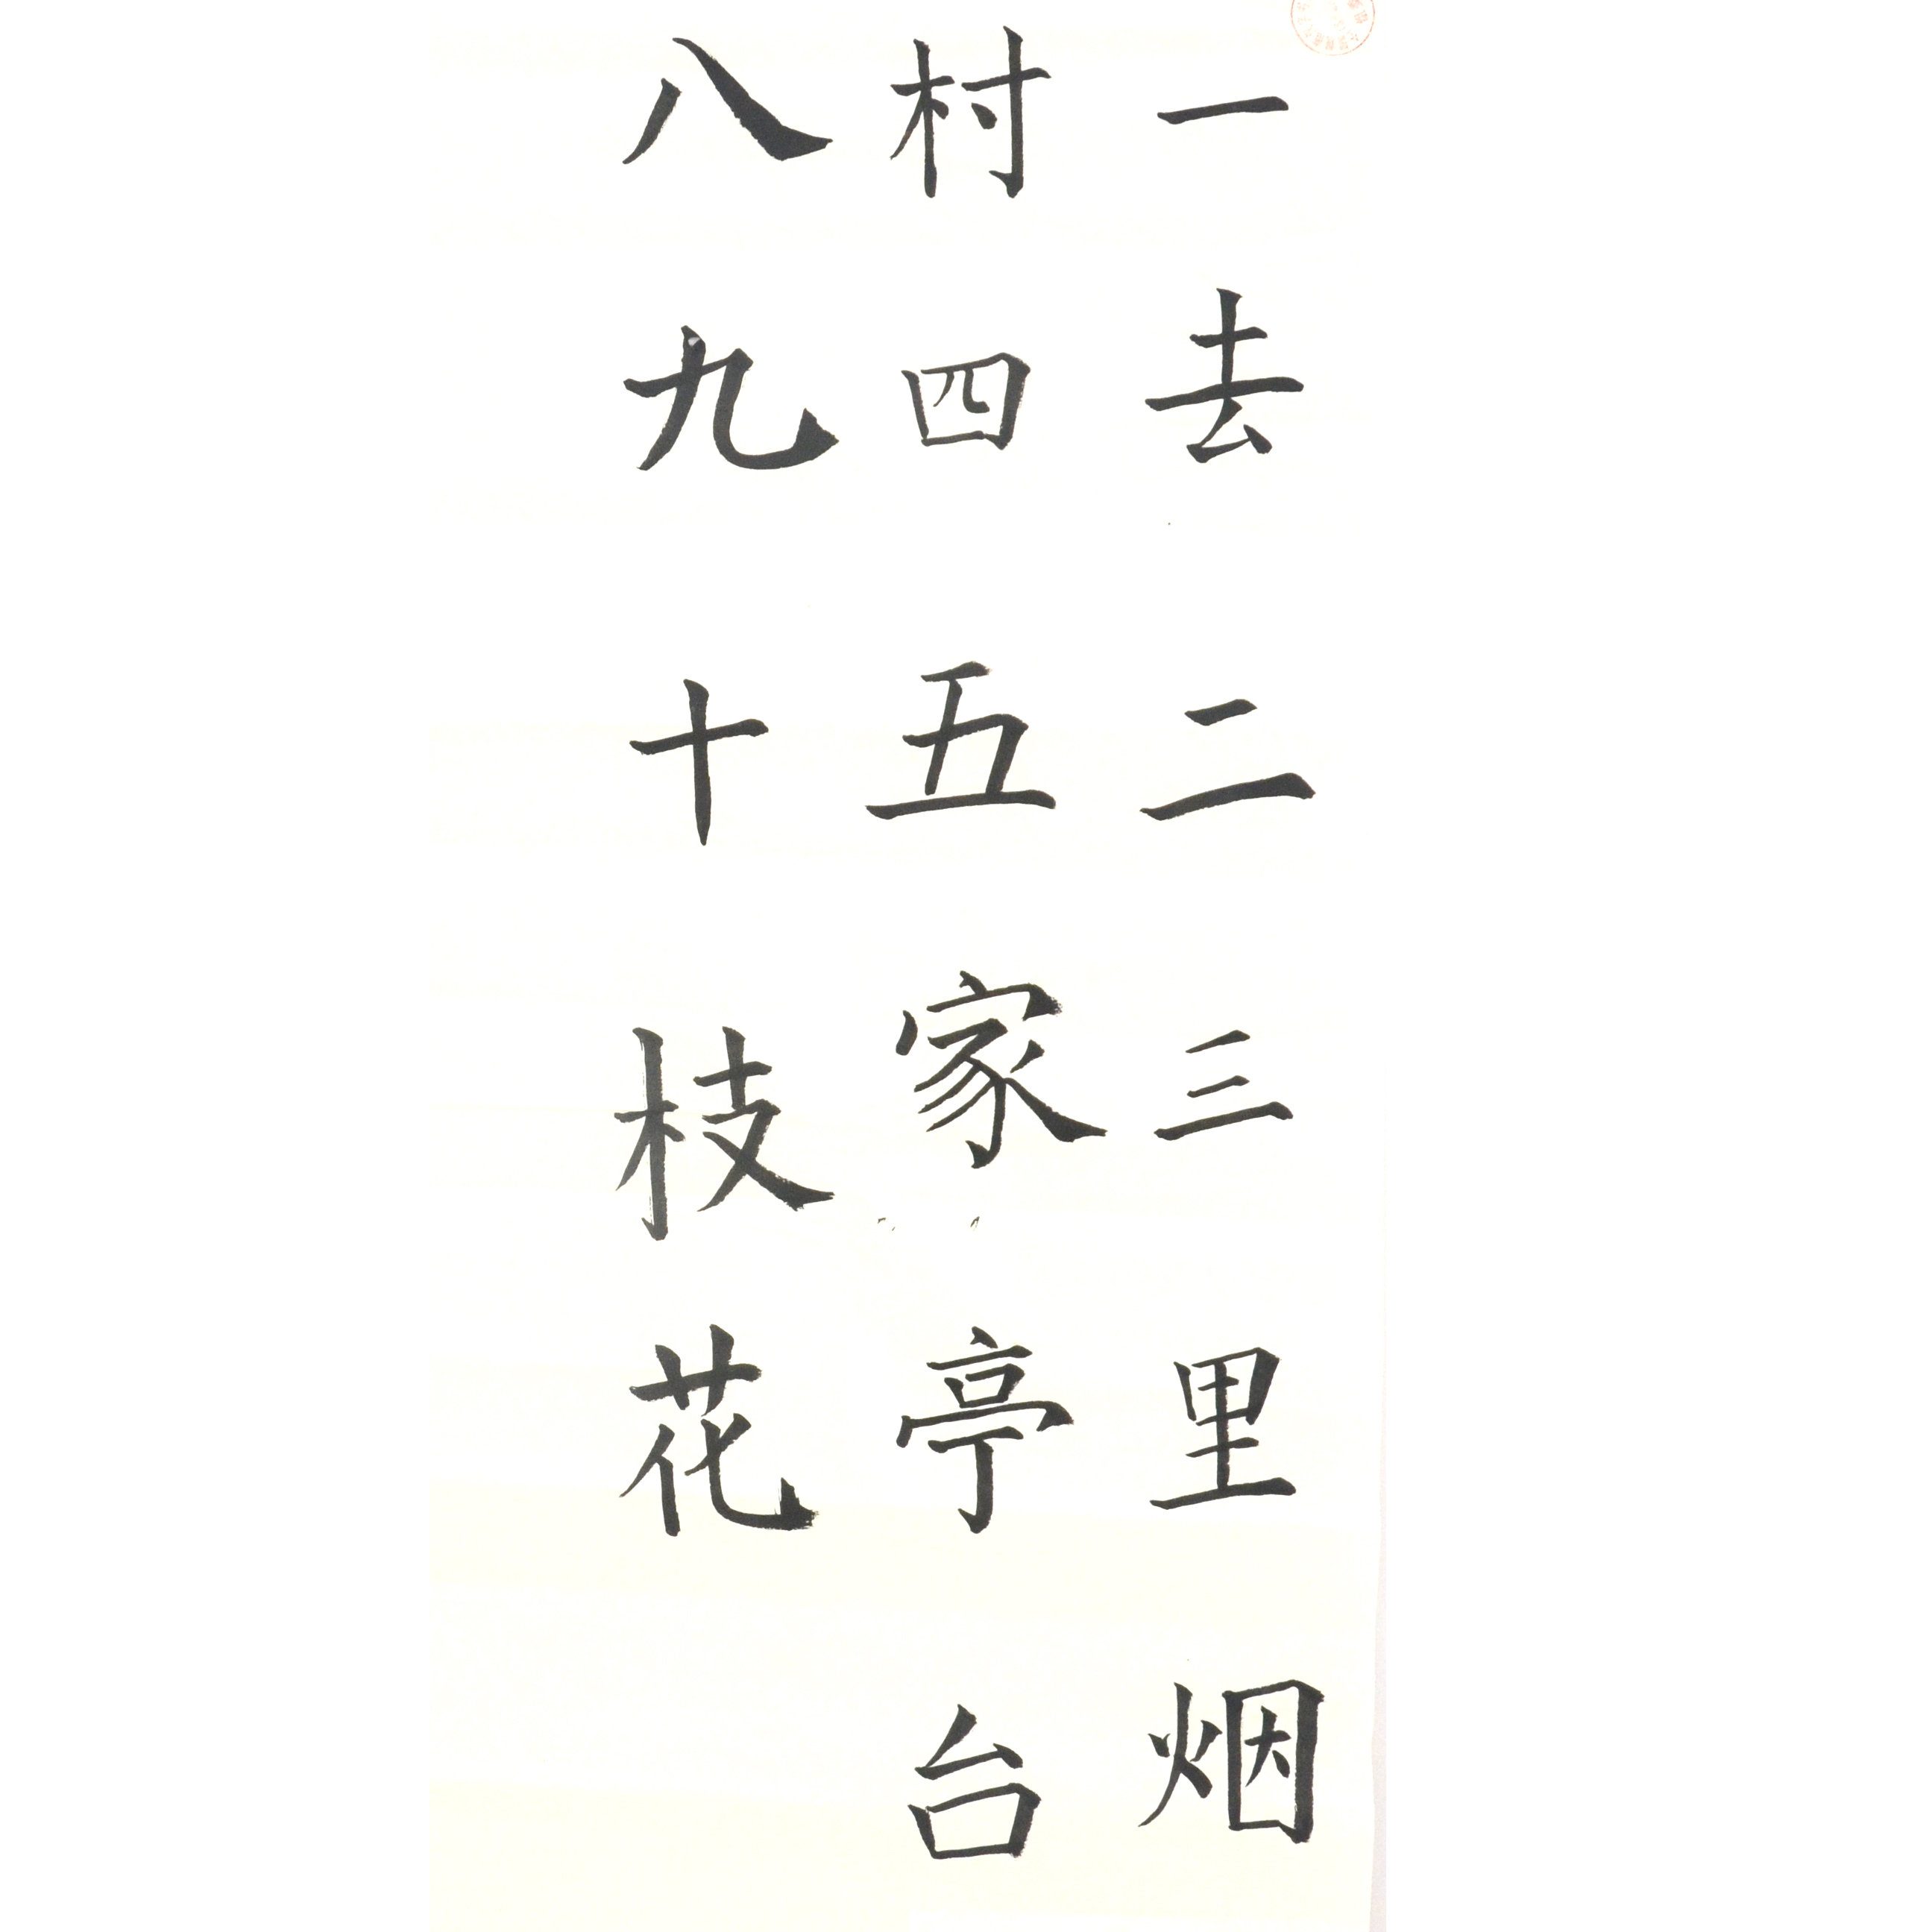 一去二三里烟
村四五家亭台
八九十枝花